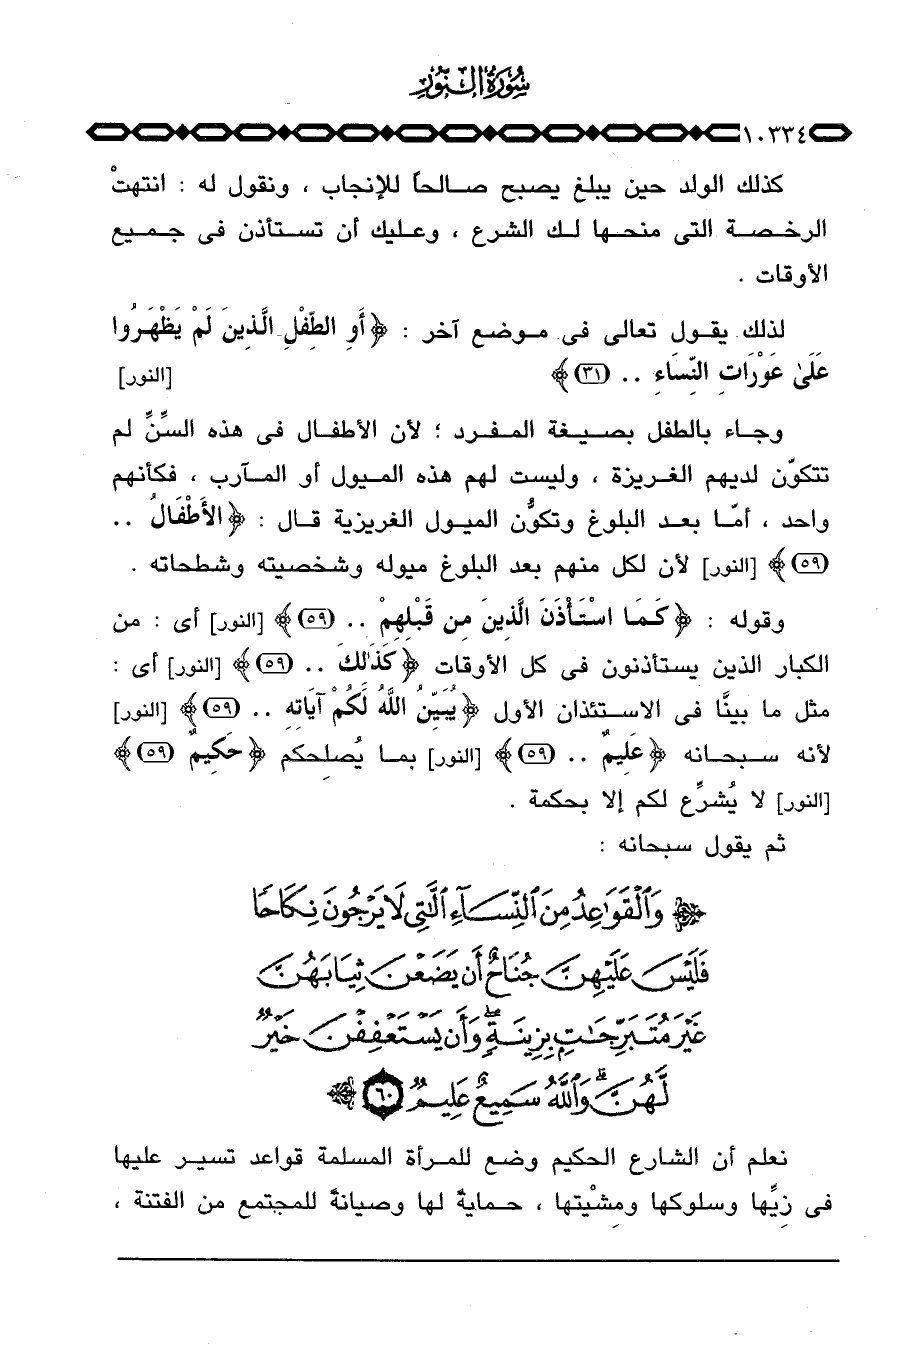 سُورَةُ النُّورِ
١٠٣٣٤
كذلك الولد حين يبلغ يصبح صالحاً للإنجاب ، ونقول له : انتهتْ
الرخصة التى منحها لك الشرع ، وعليك أن تستأذن فى جميع
الأوقات .
لذلك يقول تعالى فى موضع آخر : ﴿أَوِ الطِّفْلِ الَّذِينَ لَمْ يَظْهَرُوا
عَلَىٰ عَوْرَاتِ النِّسَاءِ .. (٣١)﴾ [النور]
وجاء بالطفل بصيغة المفرد ؛ لأن الأطفال فى هذه السنِّ لم
تتكوّن لديهم الغريزة ، وليست لهم هذه الميول أو المآرب ، فكأنهم
واحد ، أمّا بعد البلوغ وتكوُّن الميول الغريزية قال : ﴿الأَطْفَالُ ..
(٥٩)﴾ [النور] لأن لكل منهم بعد البلوغ ميوله وشخصيته وشطحاته .
وقوله : ﴿كَمَا اسْتَأْذَنَ الَّذِينَ مِن قَبْلِهِمْ .. (٥٩)﴾ [النور] أى : من
الكبار الذين يستأذنون فى كل الأوقات ﴿كَذَٰلِكَ .. (٥٩)﴾ [النور] أى :
مثل ما بينَّا فى الاستئذان الأول ﴿يُبَيِّنُ اللَّهُ لَكُمْ آيَاتِهِ .. (٥٩)﴾ [النور]
لأنه سبحانه ﴿عَلِيمٌ .. (٥٩)﴾ [النور] بما يُصلحكم ﴿حَكِيمٌ (٥٩)﴾
[النور] لا يُشرِّع لكم إلا بحكمة .
ثم يقول سبحانه :
﴿وَٱلْقَوَٰعِدُ مِنَ ٱلنِّسَآءِ ٱلَّٰتِى لَا يَرْجُونَ نِكَاحًا
فَلَيْسَ عَلَيْهِنَّ جُنَاحٌ أَن يَضَعْنَ ثِيَابَهُنَّ
غَيْرَ مُتَبَرِّجَٰتٍۭ بِزِينَةٍۖ وَأَن يَسْتَعْفِفْنَ خَيْرٌ
لَّهُنَّۗ وَٱللَّهُ سَمِيعٌ عَلِيمٌ (٦٠)﴾
نعلم أن الشارع الحكيم وضع للمرأة المسلمة قواعد تسير عليها
فى زِيِّها وسلوكها ومِشْيتها ، حمايةً لها وصيانةً للمجتمع من الفتنة ،